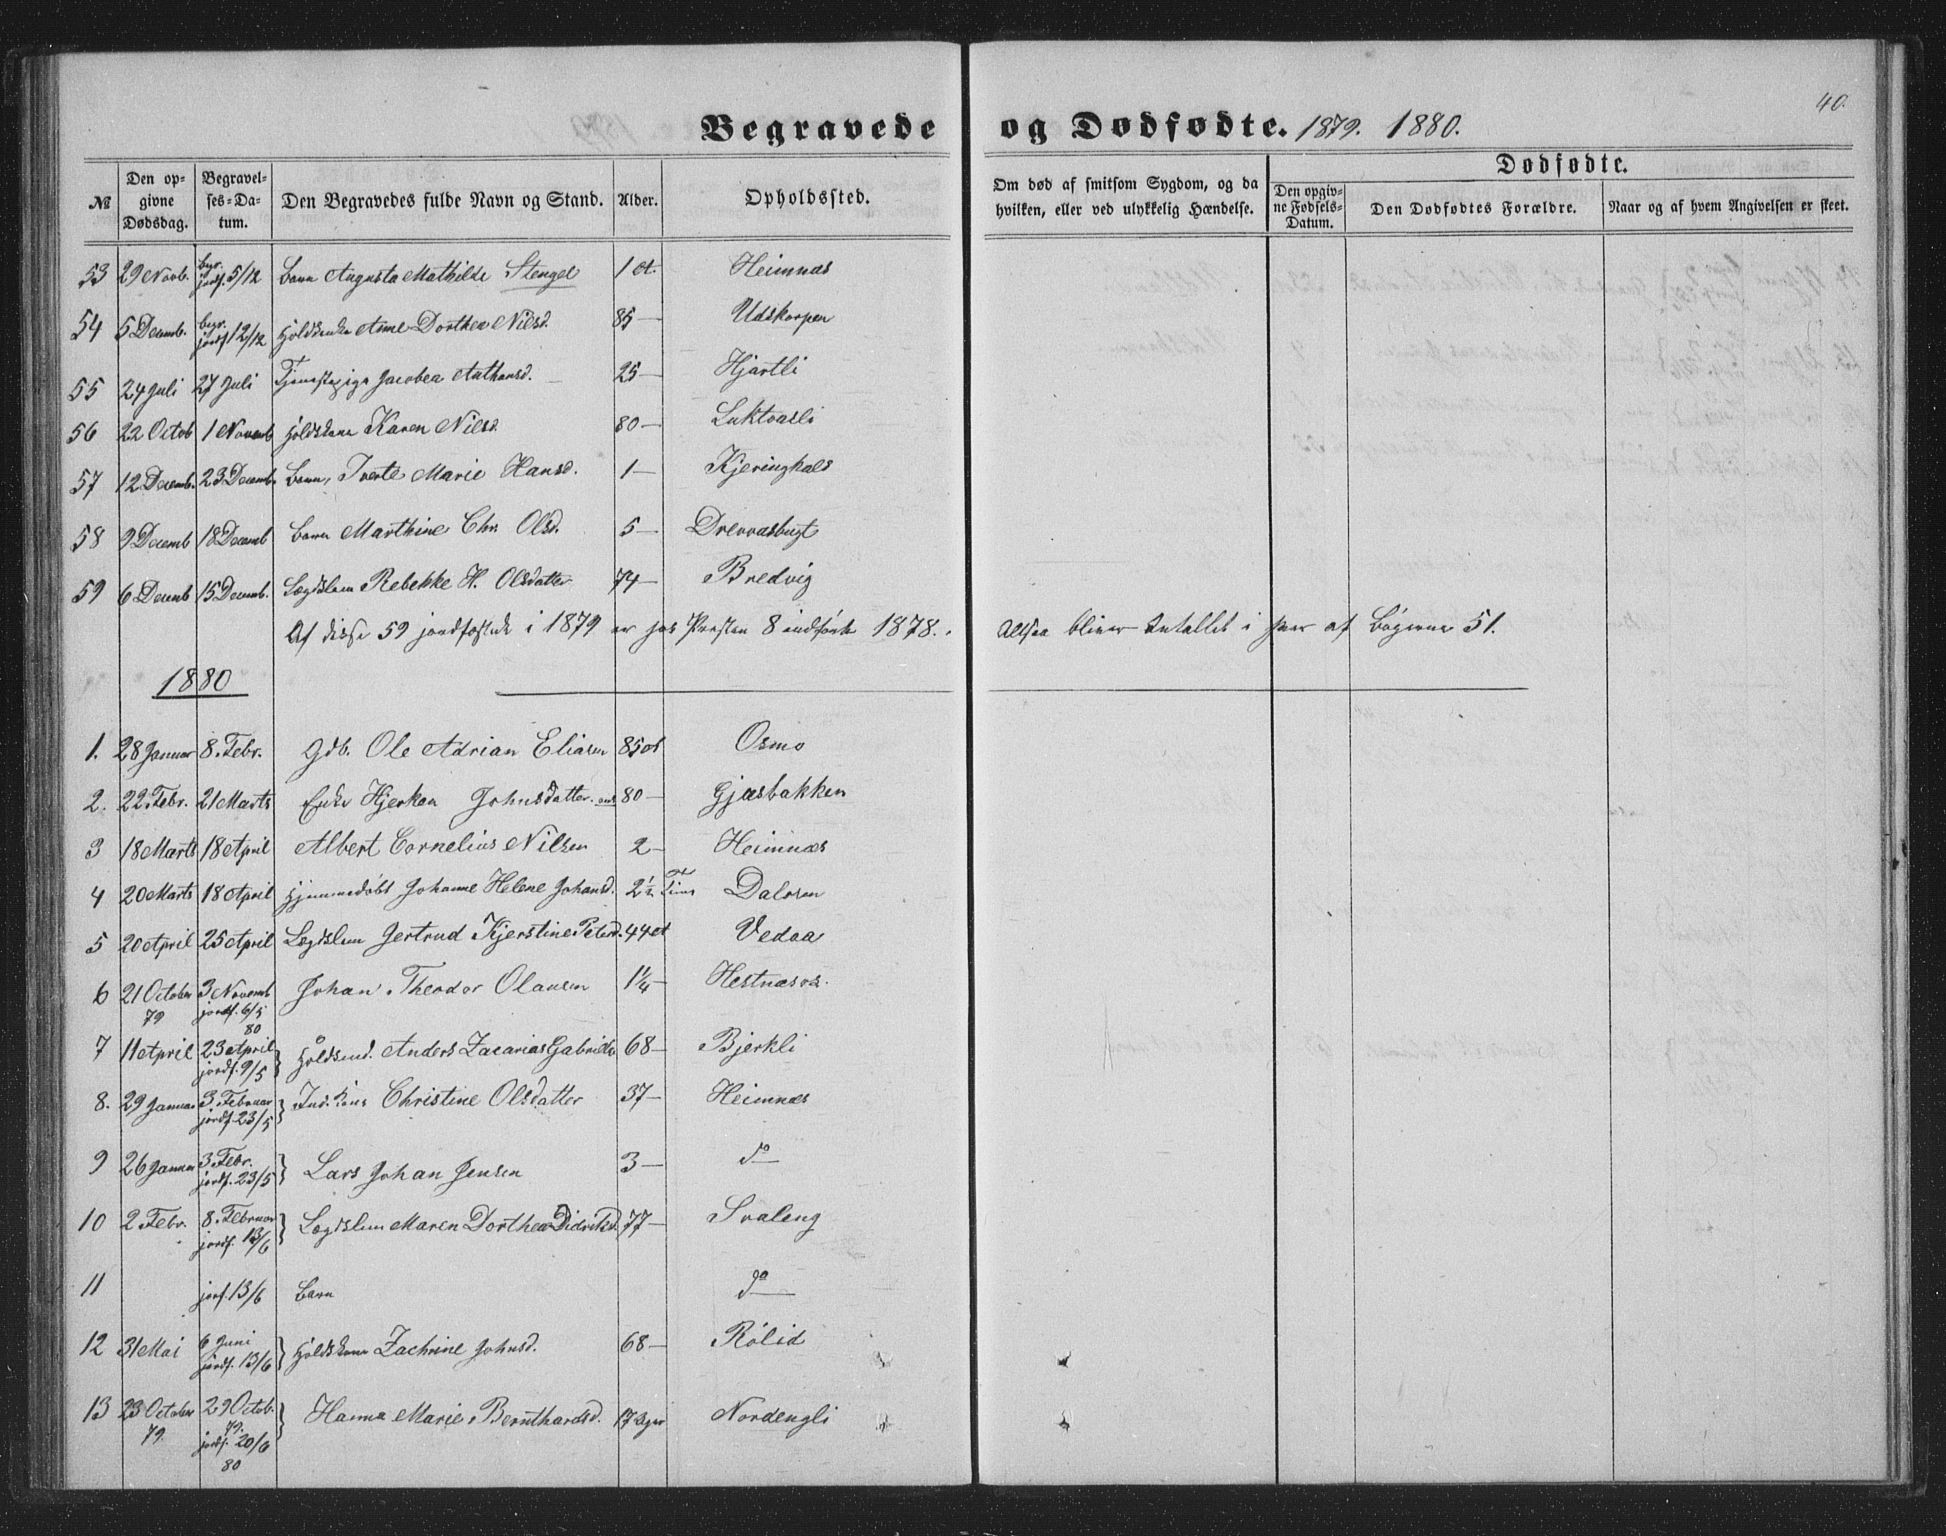 40.
Begravede og Dødfødte. 1879. 1880.
Dødfødte.
№ Den opgivne Dødsdag. Begravelses-Datum. Den Begravedes fulde Navn og Stand. Alder. Opholdssted. Om død af smitsom Sygdom, og da hvilken, eller ved ulykkelig Hændelse. Den opgivne Fødsels-Datum. Den Dødfødtes Forældre. Naar og af hvem Angivelsen er skeet.
53 29 Novb. begr. jordf. 5/12 Barn Augusta Mathilde Stengel 1 et. Heimnæs
54 5 Decemb. begr. jordf 12/12 Anne Dorthea Nilsd. 85 — Udskarpen
55 24 Juli 27 Juli Tjenestepige Jacobea 25 — Hjartli
56 22 Octob 1 Novemb Holdskone Karen Nilsd. 80 — Luktvasli
57 12 Decemb. 23 Decemb. Barn, Iverte Marie Hansd. 1 — Kjeringhals
58 9 Decemb 18 Decemb Barn Marthine Chr. Olsd. 5 — Drevvasbugt
59 6 Decemb 15 Decemb. Lægdslem Rebekke H. Olsdatter 74 — Bredvig
Af disse 59 jordfæstede i 1879 er hos Presten 8 indførte 1878. Altsaa bliver Antallet i hver af Bøgerne 51.
1880
1. 28 Januar 8. Febr. Gdb. Ole Adrian Eliasen 85 et Osmo
2. 22. Febr. 21 Marts Enke Hjerkea Johnsdatter. 80 — Gjæsbakken
3 18 Marts 18 April Albert Cornelius Nilsen 2 — Heimnæs
4 20 Marts 18 April Hjemmedøbt Johanne Helene Johansd. 2 1/2 Time Dalosen
5 20 April 25 April Lægdslem Gertrud Kjerstine Petersd. 44 et Vedaa
6 21 October 79 3 Novemb jordf. 6/5 80 Johan Theodor Olausen 1 1/4 — Hestnæsos.
7 11 April 23 April jordf. 9/5 } Holdsmd. Anders Zacarias Gabrielse 68 — Bjerkli
8. 29 Januar 3. Februar jordf. 23/5 } Ind. kone Christine Olsdatter 37 — Heimnæs
9 26 Januar 3. Febr. jordf. 23/5 } Lars Johan Jensen 3 — do
10 2. Febr. 8. Februar jordf. 13/6 } Lægdslem Maren Dorthea Didriksd. 77 — Svaleng
11 jorf. 13/6 Barn do
12 31 Mai 6 Juni jordf. 13/6 } Holdskone Zachrine Johnsd. 68 — Rölid
13 23 October 79. 29 Octob. 79. jordf. 20/6 80 } Hanna Marie Bernthardsd. 17 Dger Nordengli